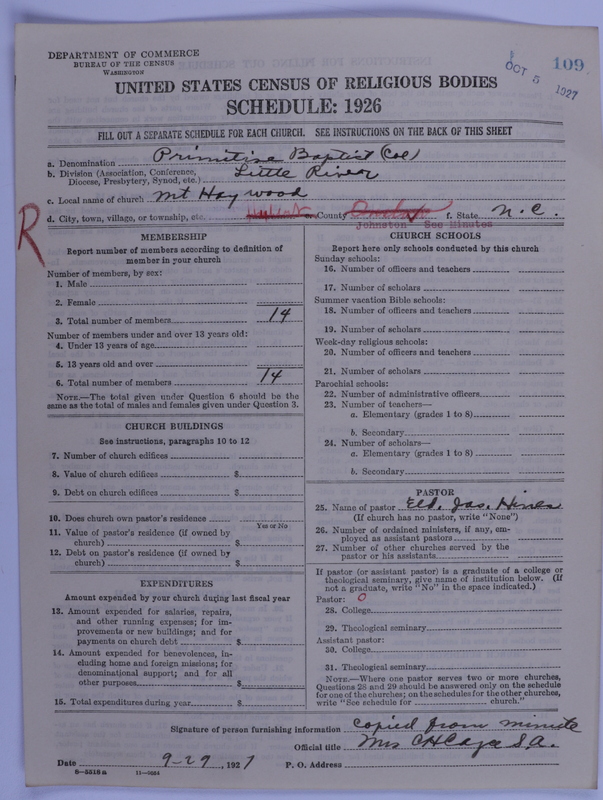 DEPARTMENT OF COMMERCE
BUREAU OF THE CENSUS
WASHINGTON
OCT 5 1927
109
UNITED STATES CENSUS OF RELIGIOUS BODIES
SCHEDULE: 1926
FILL OUT A SEPARATE SCHEDULE FOR EACH CHURCH. SEE INSTRUCTIONS ON THE BACK OF THIS SHEET
a. Denomination Primitive Baptist (Col)
b. Division (Association, Conference, Diocese, Presbytery, Synod, etc.) Little River
c. Local name of church Mt Haywood
d. City, town, village, or township, etc. e. County f. State N. C.
Johnston See Minutes
R
MEMBERSHIP
Report number of members according to definition of
member in your church
Number of members, by sex:
1. Male
2. Female
3. Total number of members 14
Number of members under and over 13 years old:
4. Under 13 years of age
5. 13 years old and over
6. Total number of members 14
NOTE.—The total given under Question 6 should be the
same as the total of males and females given under Question 3.
CHURCH BUILDINGS
See instructions, paragraphs 10 to 12
7. Number of church edifices
8. Value of church edifices $
9. Debt on church edifices $
10. Does church own pastor's residence
Yes or No
11. Value of pastor's residence (if owned by
church) $
12. Debt on pastor's residence (if owned by
church) $
EXPENDITURES
Amount expended by your church during last fiscal year
13. Amount expended for salaries, repairs,
and other running expenses; for im-
provements or new buildings; and for
payments on church debt $
14. Amount expended for benevolences, in-
cluding home and foreign missions; for
denominational support; and for all
other purposes $
15. Total expenditures during year $
CHURCH SCHOOLS
Report here only schools conducted by this church
Sunday schools:
16. Number of officers and teachers
17. Number of scholars
Summer vacation Bible schools:
18. Number of officers and teachers
19. Number of scholars
Week-day religious schools:
20. Number of officers and teachers
21. Number of scholars
Parochial schools:
22. Number of administrative officers
23. Number of teachers—
a. Elementary (grades 1 to 8)
b. Secondary
24. Number of scholars—
a. Elementary (grades 1 to 8)
b. Secondary
PASTOR
25. Name of pastor Eld. Jas. Hines
(If church has no pastor, write "None")
26. Number of ordained ministers, if any, em-
ployed as assistant pastors
27. Number of other churches served by the
pastor or his assistants
If pastor (or assistant pastor) is a graduate of a college or
theological seminary, give name of institution below. (If
not a graduate, write "No" in the space indicated.)
Pastor: O
28. College
29. Theological seminary
Assistant pastor:
30. College
31. Theological seminary
NOTE.—Where one pastor serves two or more churches,
Questions 28 and 29 should be answered only on the schedule
for one of the churches; on the schedules for the other churches,
write "See schedule for church."
Signature of person furnishing information Copied from minute
Official title Mrs S.A.
Date 9-29, 1927 P. O. Address
8-3518a 11-9064